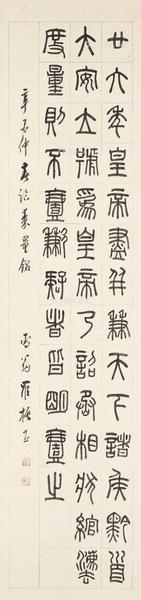 廿六年皇帝盡并兼天下諸侯黔首
大安立號爲皇帝乃詔丞相狀綰灋
度量則不壹歉疑者皆明壹之
辛未仲春臨秦量銘 雪翁羅振玉